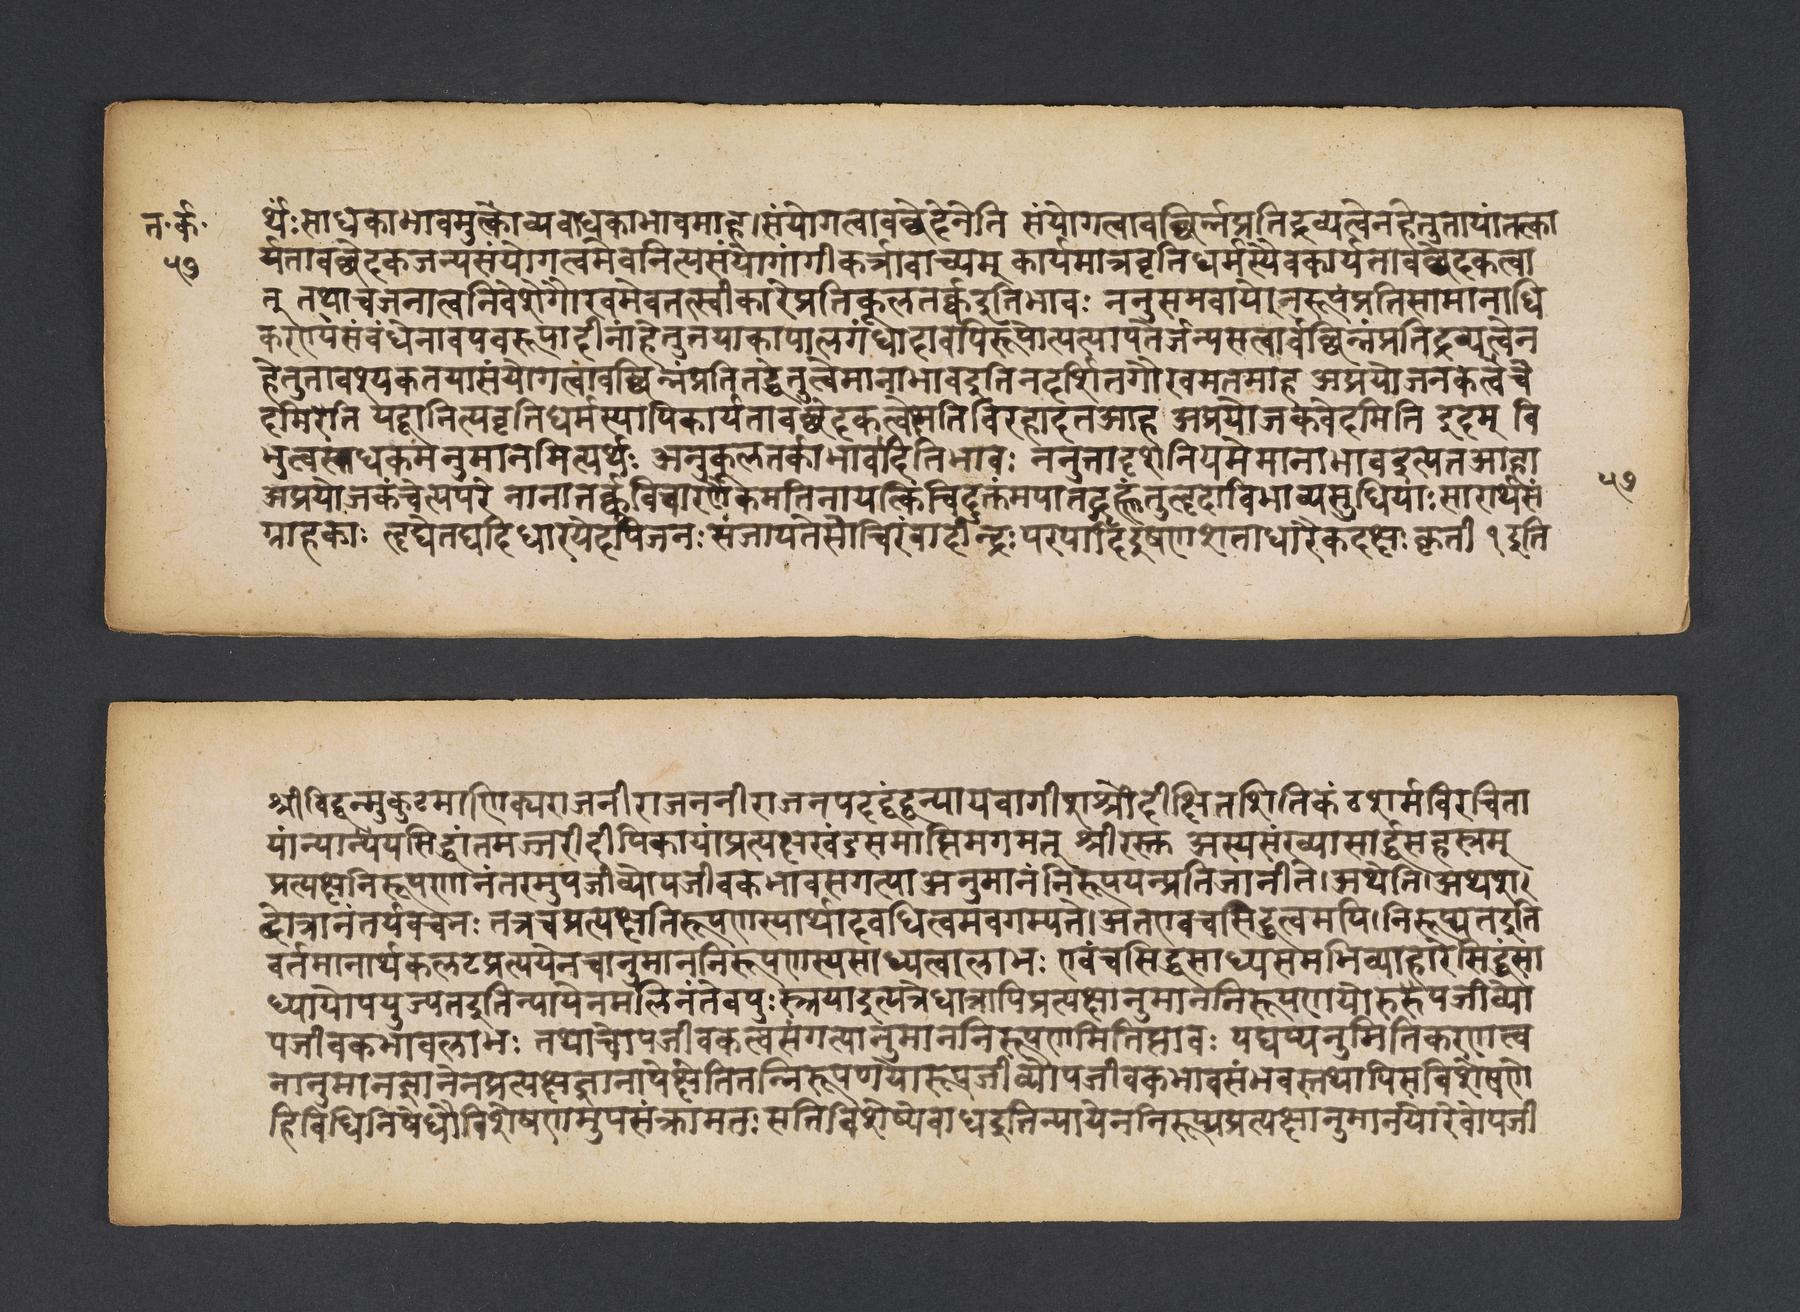 त॰र्क॰
५७
र्थः साधकाभावमुत्क्वैव्यवाधकाभावमाह।संयोगत्वावच्छेदेनेति संयोगत्वावच्छिन्नंप्रतिद्रव्यत्वेनहेतुतायांतत्का
र्यतावच्छेदकजन्यसंयोगत्वमेवनित्यसंयोगांगीकर्त्रावाच्यम् कार्यमात्रवृत्तिधर्मस्यैवकार्यतावच्छेदकत्वा
त् तथाचजनात्वनिवेशेगौरवमेवतत्स्वीकारेप्रतिकूलतर्क्कइतिभावः ननुसमवायेनरूपंप्रतिसामानाधि
करण्यसंबंधेनावयवरूपादीनांहेतुतयाकापालगंधादावपिरूपोत्पत्यापत्तेर्जन्यसत्वावच्छिन्नंप्रतिद्रव्यत्वेन
हेतुतावश्यकतयासंयोगत्वावच्छिन्नंप्रतितद्धेतुत्वेमानाभावइतिनदर्शितगौरवमतमाह अप्रयोजनकत्वंचे
दमिरेति यद्वानित्यवृत्तिधर्मस्यापिकार्यतावच्छेदकत्वेसतिविरहादतआह अप्रयोजकंवेदमिति इदम् वि
भुत्वसाधकमनुमानमित्यर्थः अनुकूलतर्काभावादितिभावः ननुतादृशनियमेमानाभावइत्यतआहा
अप्रयोजकंचेत्यपरे नानातर्क्कविचारणैकमतिनायत्किंचिदुक्तंमयातद्गृह्णंतुलृदाविभाव्यसुधियाःसारार्थसं
ग्राहकाः लृद्येतद्यदिधारयेदपिजनः संजायतेसौचिरंवादीन्द्रः परपार्दिदुषणशताधारैकदक्षः कृती १ इति
५७
श्रीविद्वन्मुकुटमाणिक्यराजनीराजननीराजनपदद्वंद्वन्यायवागीशश्रीदीक्षितशितिकंठशर्मविरचिता
यांन्यान्यैयसिद्धांतमञ्जरीदीपिकायांप्रत्यक्षखंडसमाप्तिमगमत् श्रीरस्तु अस्यसंख्यासार्द्धसहस्त्रम्
प्रत्यक्षनिरूपणानंतरमुपजीव्योपजीवकभावसंगत्याअनुमानंनिरूपयन्प्रतिजानीते।अथेति।अथशा
ब्दोत्रानंतर्यवचनः तत्रचप्रत्यक्षनिरूपणस्यार्थादवधित्वमवगम्यते।अतएवचसिद्धत्वमपि।निरूप्यतइति
वर्तमानार्थकलटप्रत्ययेनचानुमाननिरूपणस्यसाध्यत्वालाभः एवंचसिद्धसाध्यसमभिव्याहारेसिद्धंसा
ध्यायोपयुज्यतइतिन्यायेनमलिनंतेवपुःस्त्रयादुत्यत्रेधात्रापिप्रत्यक्षानुमाननिरूपणयोरुरूपजीव्यो
पजीवकभावलाभः तथाचोपजीवकत्वसंगत्यानुमाननिरूपणमितिभावः यद्यप्यनुमितिकरणत्व
नानुमानज्ञानेनप्रत्यक्षज्ञानापेक्षेतितन्निरूपणयोरूपजीव्योपजीवकभावसंभवस्तथापिसविशेषणे
हिविधिनिषेधौविशेषणमुपसंक्रामतः सतिविशेष्येबाधइतिन्यायेननिरूप्यप्रत्यक्षानुमानयोरेवोपजी